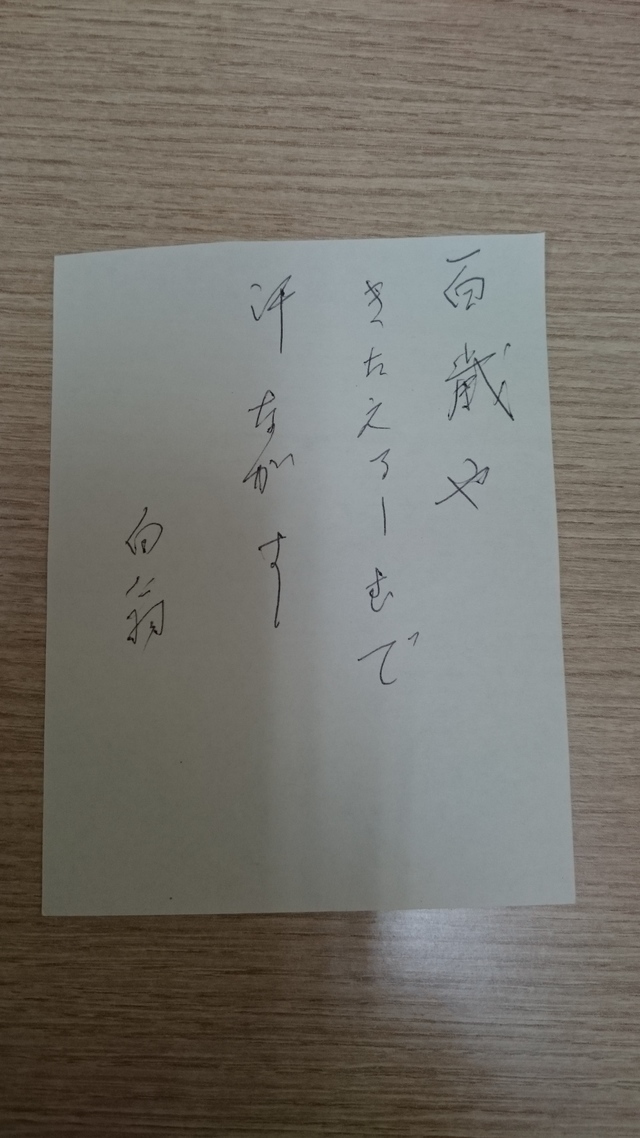 百歳や
きたえるーむで
汗ながす
白翁